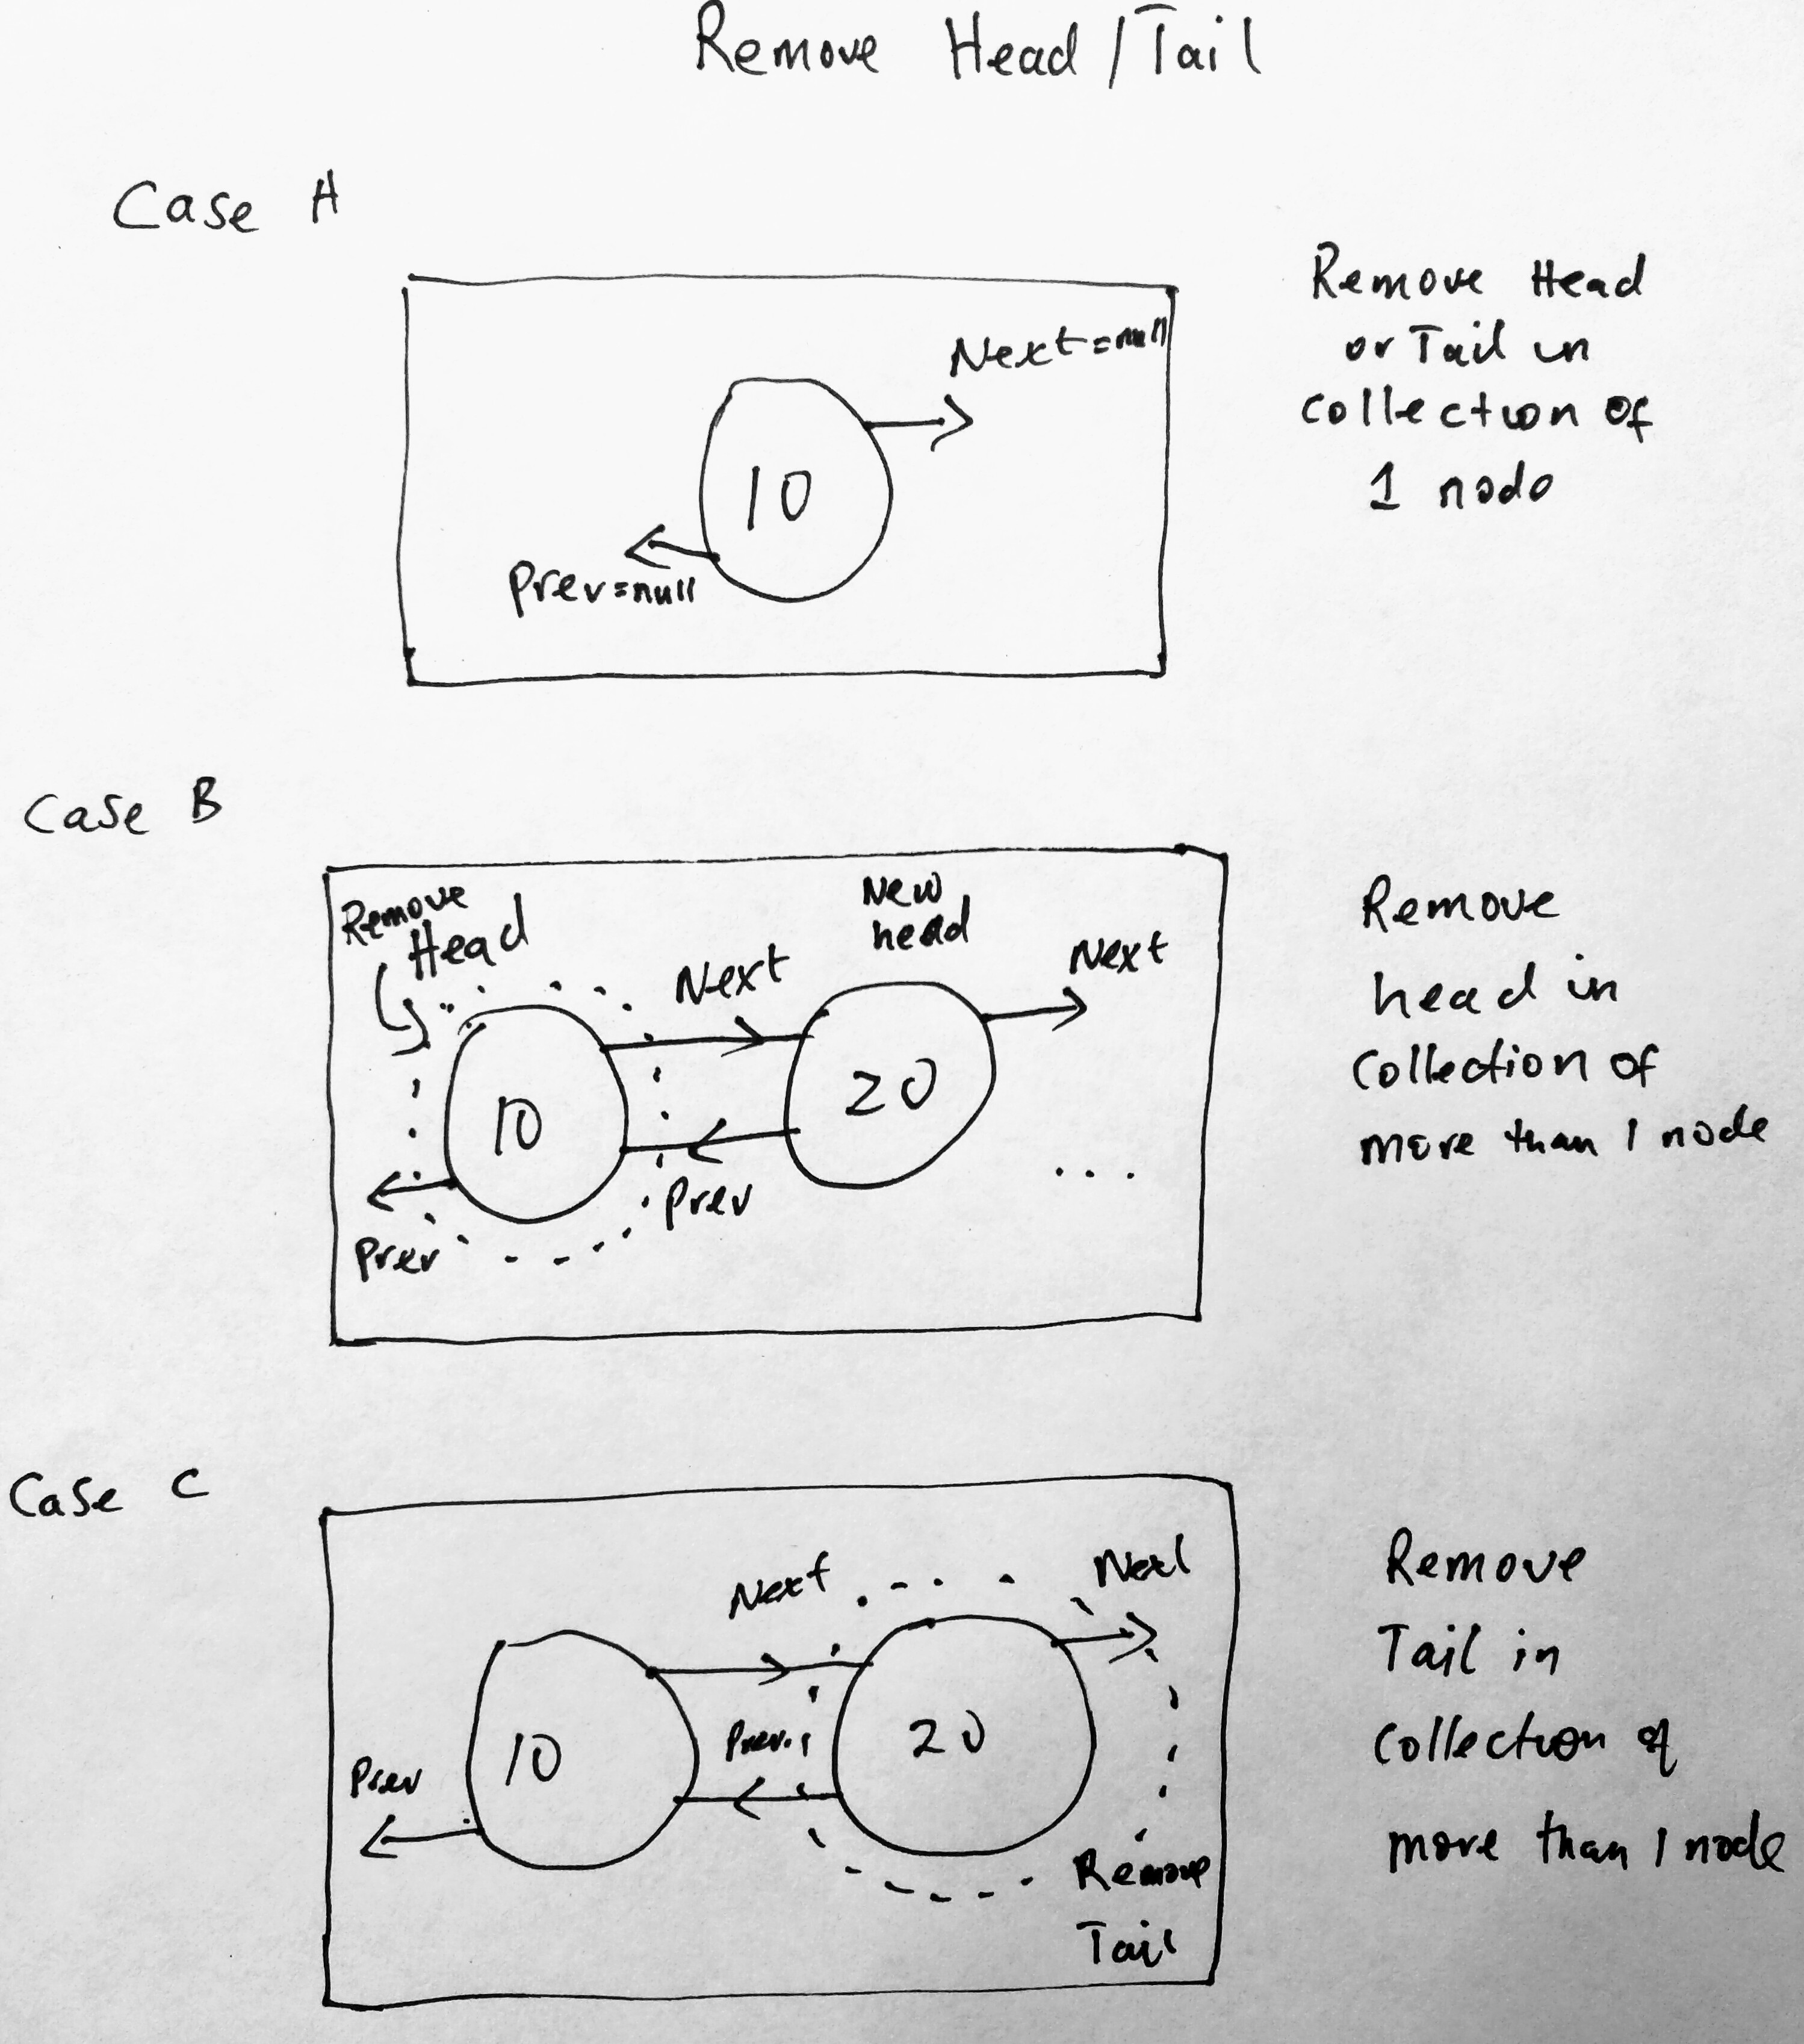 Remove Head/Tail
Case A
Next=null
10
Prev=null
Remove Head
or Tail in
collection of
1 node
Case B
Remove
Head
Next
New
head
Next
10
20
Prev
Prev
...
Remove
head in
Collection of
more than 1 node
Case C
Next
Next
10
20
Prev
Prev
Remove
Tail
Remove
Tail in
Collection of
more than 1 node